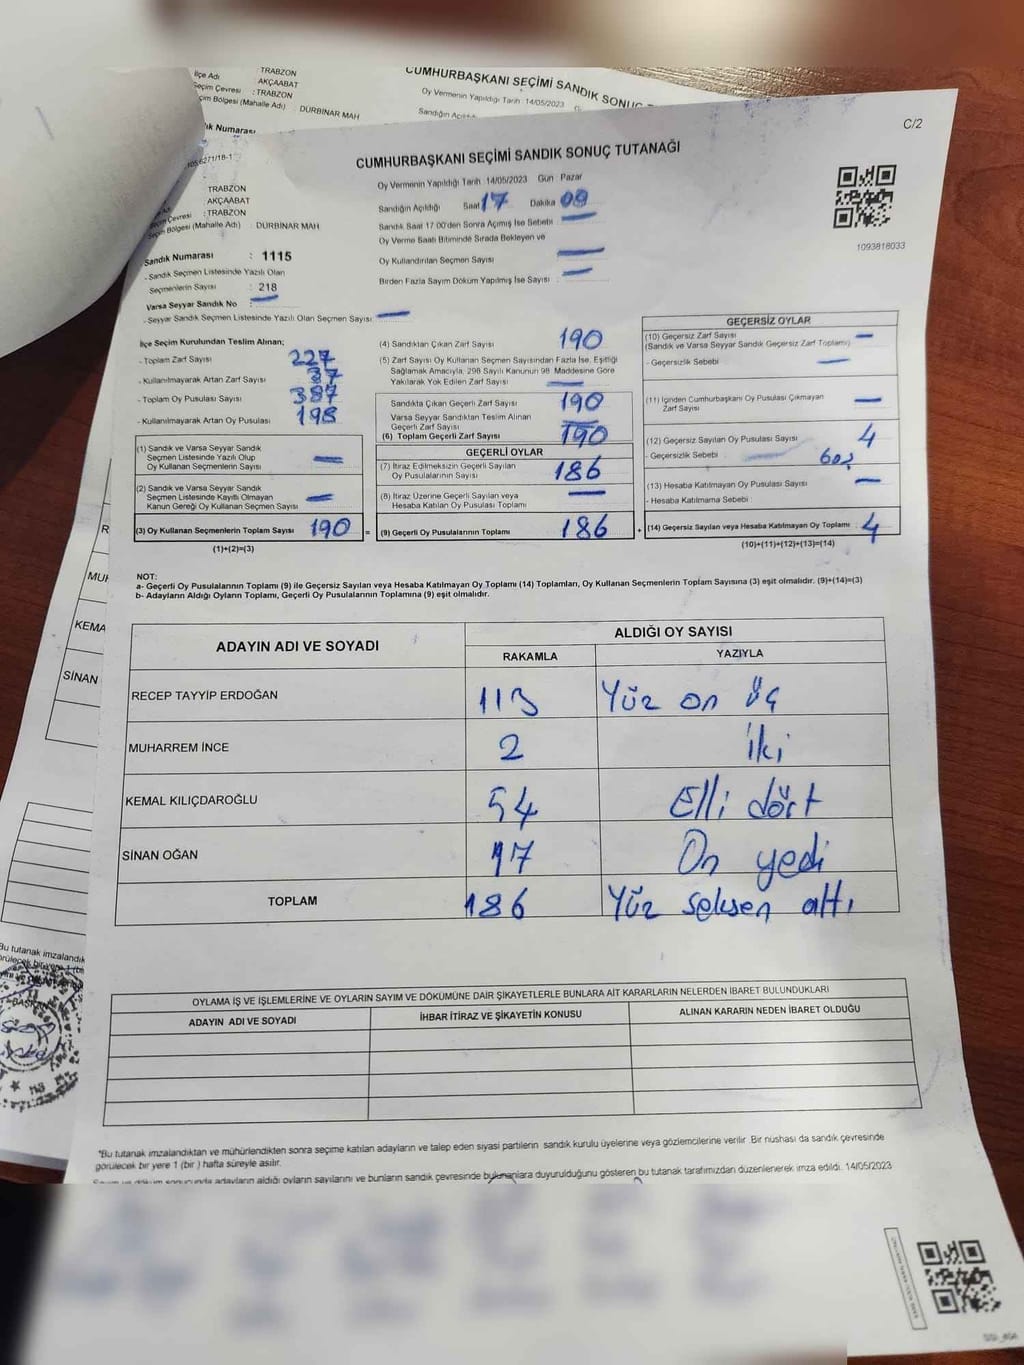 İlçe Adı
TRABZON
AKÇAABAT
Seçim Çevresi : TRABZON
Seçim Bölgesi (Mahalle Adı) DÜRBİNAR MAH
CUMHURBAŞKANI SEÇİMİ SANDIK SONUÇ
Oy Vermenin Yapıldığı Tarih : 14/05/2023
C/2
CUMHURBAŞKANI SEÇİMİ SANDIK SONUÇ TUTANAĞI
Oy Vermenin Yapıldığı Tarih 14/05/2023 Gün Pazar
Sandığın Açıldığı Saat 17 Dakika 09
Sandık Saat 17:00'den Sonra Açılmış İse Sebebi —
Oy Verme Saati Bitiminde Sırada Bekleyen ve
Oy Kullandırılan Seçmen Sayısı —
Birden Fazla Sayım Döküm Yapılmış İse Sayısı : —
1093818033
TRABZON
AKÇAABAT
: TRABZON
Seçim Bölgesi (Mahalle Adı) : DÜRBİNAR MAH
Sandık Numarası : 1115
- Sandık Seçmen Listesinde Yazılı Olan
Seçmenlerin Sayısı : 218
Varsa Seyyar Sandık No : —
- Seyyar Sandık Seçmen Listesinde Yazılı Olan Seçmen Sayısı: —
İlçe Seçim Kurulundan Teslim Alınan;
- Toplam Zarf Sayısı 227
- Kullanılmayarak Artan Zarf Sayısı 37
- Toplam Oy Pusulası Sayısı 387
- Kullanılmayarak Artan Oy Pusulası 198
(1) Sandık ve Varsa Seyyar Sandık
Seçmen Listesinde Yazılı Olup
Oy Kullanan Seçmenlerin Sayısı —
(2) Sandık ve Varsa Seyyar Sandık
Seçmen Listesinde Kayıtlı Olmayan
Kanun Gereği Oy Kullanan Seçmen Sayısı —
(3) Oy Kullanan Seçmenlerin Toplam Sayısı 190 =
(1)+(2)=(3)
(4) Sandıktan Çıkan Zarf Sayısı 190
(5) Zarf Sayısı Oy Kullanan Seçmen Sayısından Fazla İse, Eşitliği
Sağlamak Amacıyla, 298 Sayılı Kanunun 98. Maddesine Göre
Yakılarak Yok Edilen Zarf Sayısı —
Sandıkta Çıkan Geçerli Zarf Sayısı 190
Varsa Seyyar Sandıktan Teslim Alınan
Geçerli Zarf Sayısı —
(6) Toplam Geçerli Zarf Sayısı 190
GEÇERLİ OYLAR
(7) İtiraz Edilmeksizin Geçerli Sayılan
Oy Pusulalarının Sayısı 186
(8) İtiraz Üzerine Geçerli Sayılan veya
Hesaba Katılan Oy Pusulası Toplamı —
(9) Geçerli Oy Pusulalarının Toplamı 186 +
GEÇERSİZ OYLAR
(10) Geçersiz Zarf Sayısı
(Sandık ve Varsa Seyyar Sandık Geçersiz Zarf Toplamı) —
- Geçersizlik Sebebi —
(11) İçinden Cumhurbaşkanı Oy Pusulası Çıkmayan
Zarf Sayısı —
(12) Geçersiz Sayılan Oy Pusulası Sayısı 4
- Geçersizlik Sebebi :
(13) Hesaba Katılmayan Oy Pusulası Sayısı —
- Hesaba Katılmama Sebebi :
(14) Geçersiz Sayılan veya Hesaba Katılmayan Oy Toplamı : 4
(10)+(11)+(12)+(13)=(14)
NOT:
a- Geçerli Oy Pusulalarının Toplamı (9) ile Geçersiz Sayılan veya Hesaba Katılmayan Oy Toplamı (14) Toplamları, Oy Kullanan Seçmenlerin Toplam Sayısına (3) eşit olmalıdır. (9)+(14)=(3)
b- Adayların Aldığı Oyların Toplamı, Geçerli Oy Pusulalarının Toplamına (9) eşit olmalıdır.
ADAYIN ADI VE SOYADI ALDIĞI OY SAYISI
RAKAMLA YAZIYLA
RECEP TAYYİP ERDOĞAN 113 Yüz on üç
MUHARREM İNCE 2 iki
KEMAL KILIÇDAROĞLU 54 Elli dört
SİNAN OĞAN 17 On yedi
TOPLAM 186 Yüz seksen altı
OYLAMA İŞ VE İŞLEMLERİNE VE OYLARIN SAYIM VE DÖKÜMÜNE DAİR ŞİKAYETLERLE BUNLARA AİT KARARLARIN NELERDEN İBARET BULUNDUKLARI
ADAYIN ADI VE SOYADI İHBAR İTİRAZ VE ŞİKAYETİN KONUSU ALINAN KARARIN NEDEN İBARET OLDUĞU
"Bu tutanak imzalandıktan ve mühürlendikten sonra seçime katılan adayların ve talep eden siyasi partilerin sandık kurulu üyelerine veya gözlemcilerine verilir. Bir nüshası da sandık çevresinde
görülecek bir yere 1 (bir ) hafta süreyle asılır.
Sayım ve döküm sonucunda adayların aldığı oyların sayılarını ve bunların sandık çevresinde bulunanlara duyurulduğunu gösteren bu tutanak tarafımızdan düzenlenerek imza edildi. 14/05/2023